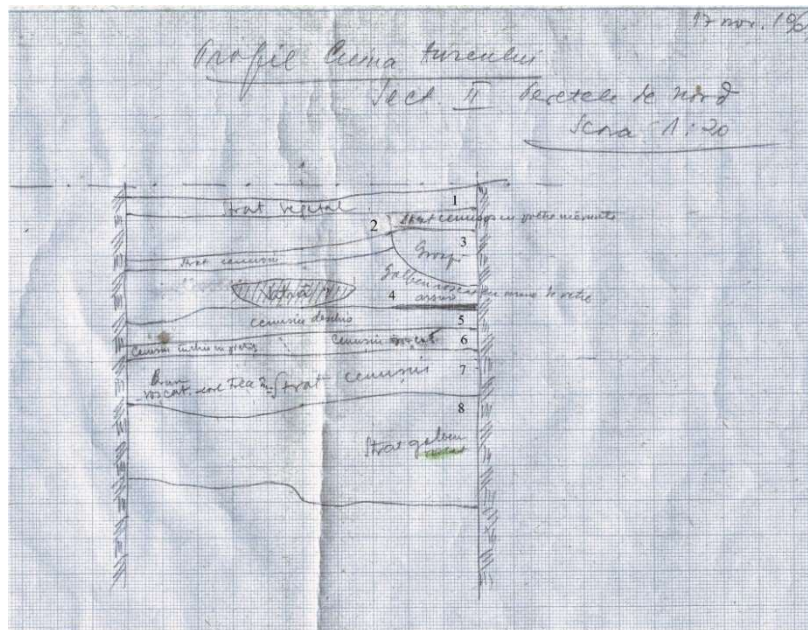 17 nov. 19
Profil Ciuma turcului
Sect. II Peretele de nord
Scara 1:20
1
Strat vegetal
2
Strat cenusos cu pietre marunte
3
Groapă
Strat cenusiu
Galben roscat cu urme de vetre
4
5
cenusiu deschis
6
Cenusiu inchis cu pietris
Cenusiu roscat
7
Brun
roscat
Strat cenusiu
8
Strat galben
roscat